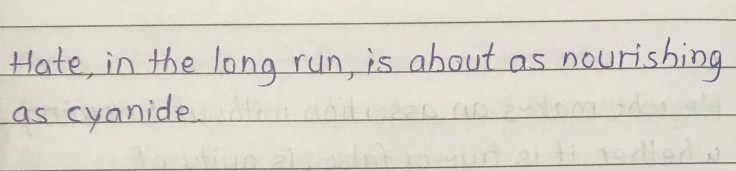 Hate, in the long run, is about as nourishing
as cyanide.